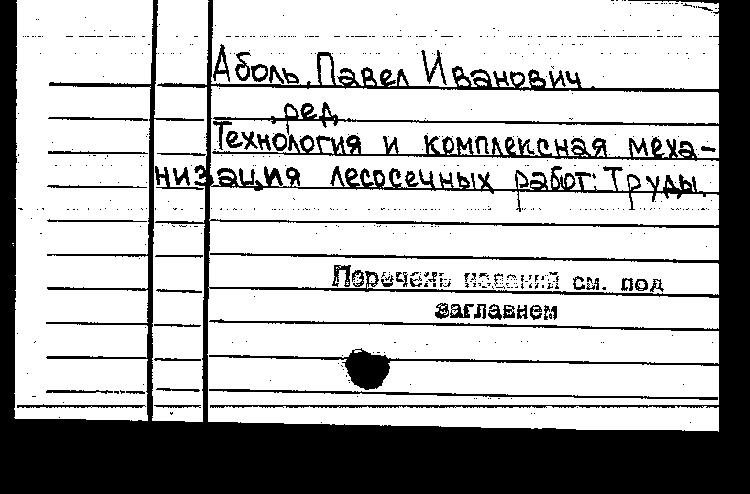 Аболь, Павел Иванович.
, ред.
Технология и комплексная меха-
низация лесосечных работ: Труды.
Перечень изданий см. под
заглавием